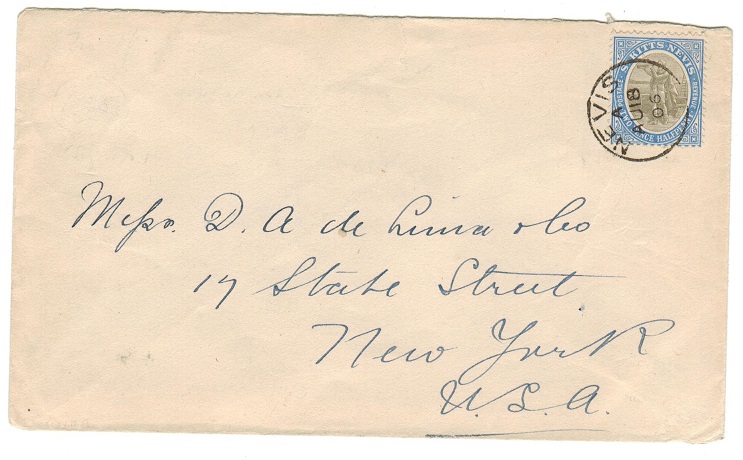 ST KITTS-NEVIS
POSTAGE & REVENUE
TWO PENCE HALFPENNY
NEVIS
A
AU 18
06
Messrs. D. A de Lima & Co
17 State Street
New York
U.S.A.